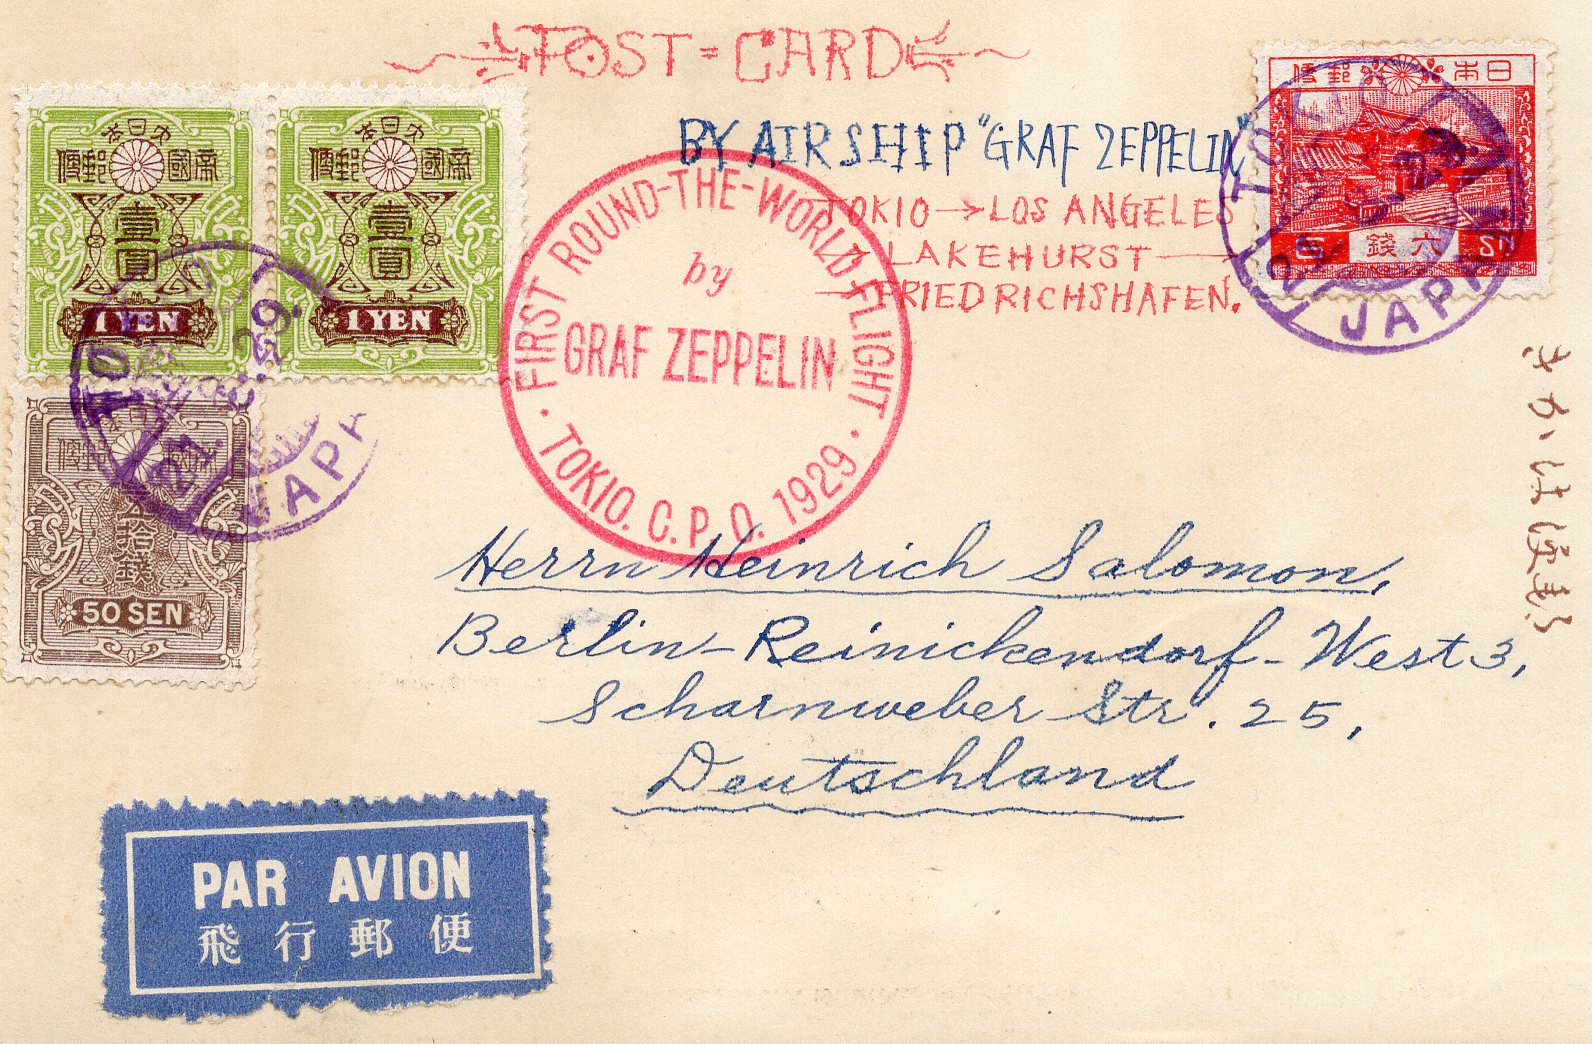 POST = CARD
BY AIRSHIP "GRAF ZEPPELIN"
TOKIO → LOS ANGELES
→ LAKEHURST →
→ FRIEDRICHSHAFEN.
大日本
帝國郵便
壹圓
1 YEN
大日本
帝國郵便
壹圓
1 YEN
郵便
五拾錢
50 SEN
TOKIO
21. 8. 29.
JAPAN
日本郵便
六錢
6 SN
TOKIO
JAPAN
FIRST ROUND-THE-WORLD-FLIGHT
by
GRAF ZEPPELIN
TOKIO. C. P. O. 1929.
きかは
Herrn Heinrich Salomon,
Berlin-Reinickendorf-West 3,
Scharnweber Str. 25,
Deutschland
PAR AVION
飛行郵便